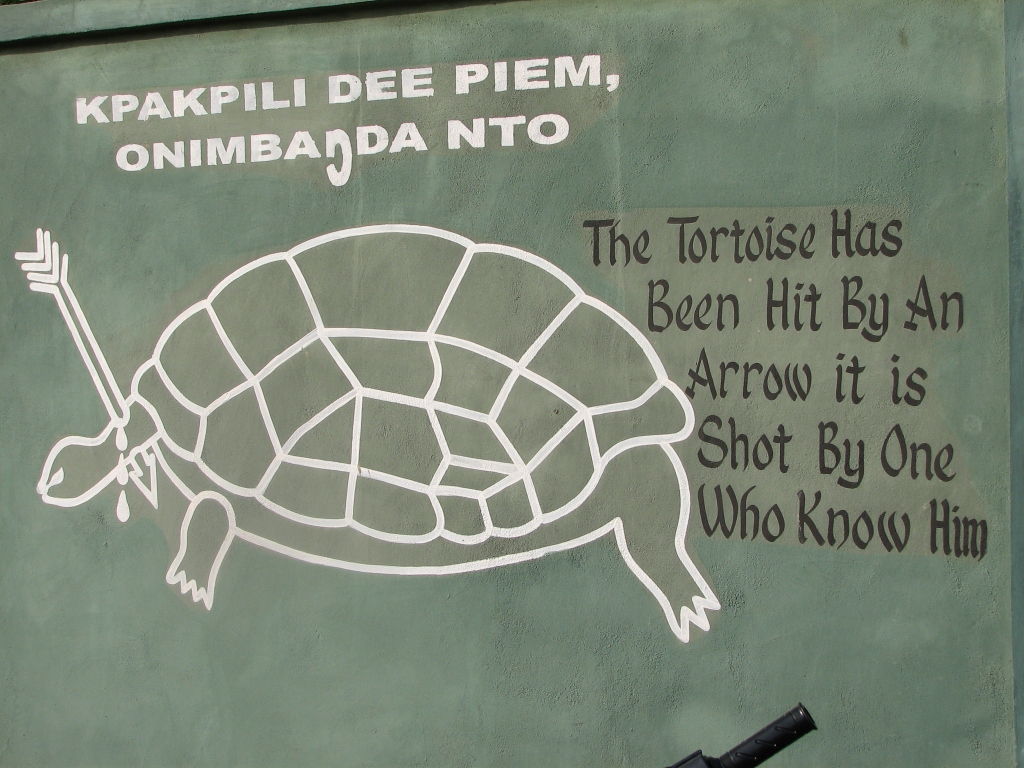 KPAKPILI DEE PIEM,
ONIMBAŊDA NTO
The Tortoise Has
Been Hit By An
Arrow it is
Shot By One
Who Know Him